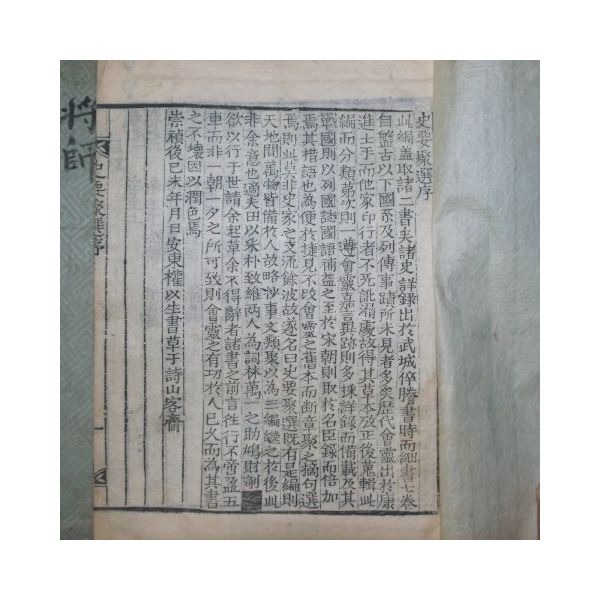 史要聚選序
此編盖取諸二書矣諸史詳錄出於武城倅謄書時而細書七卷
自盤古以下國系及列傳事蹟所未見者多矣歷代會靈出於康
進士手而他家印行者不死訛濁處故得其草本攷正後蒐輯此
編而分類第次則一遵會靈嘉言異跡則多採詳錄而備載及其
戰國則以列國誌國語補益之至於宋朝則取於名臣錄而倍加
焉其措語也為便於捷見不改會靈之舊本而斷章聚之摘句選
焉則此吳非史家之支流餘波故遂名曰史要聚選既有是編則
天地間萬物皆備於人故略沙事文類聚以為二編繼之於後此
非余意也適夫田以采朴致維兩人為詞林萬一之助鳩財剞
欲以行于世請余起草余不得辭者諸書之前言往行不啻盈五
車而非一朝一夕之所可致則會靈之有功於人已久而為其書
之不壞因以潤色焉
崇禎後己未年月日安東權以生書草于詩山客齋
史要聚選序
將師